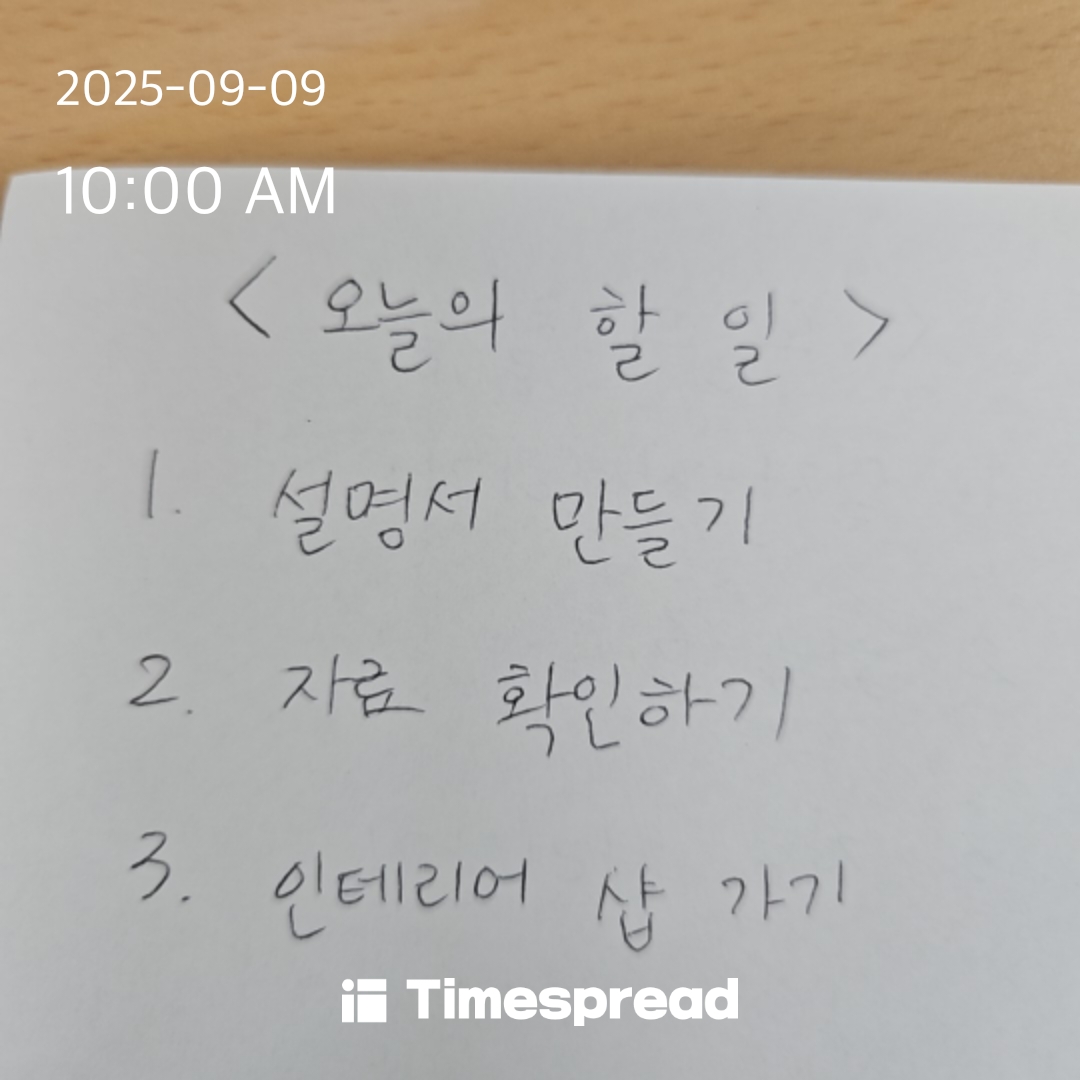 2025-09-09
10:00 AM
< 오늘의 할 일 >
1. 설명서 만들기
2. 자료 확인하기
3. 인테리어 샵 가기
Timespread